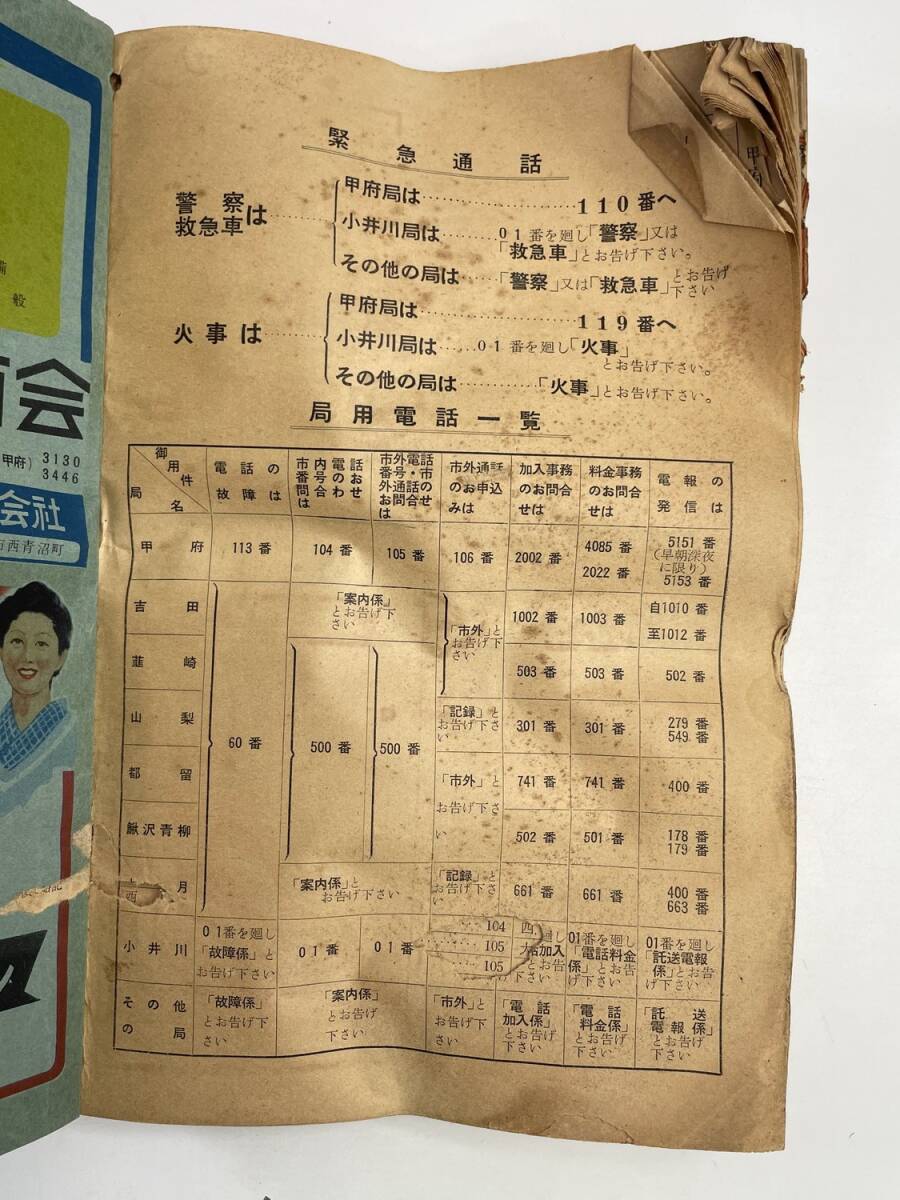 緊急通話
警察
救急車は
甲府局は……110番へ
小井川局は……01番を廻し「警察」又は
「救急車」とお告げ下さい。
その他の局は……「警察」又は「救急車」とお告げ
下さい
火事は
甲府局は……119番へ
小井川局は……01番を廻し「火事」
とお告げ下さい。
その他の局は……「火事」とお告げ下さい。
局用電話一覧
御用件
局名
電話の
故障は
市内電話
番号のおせ
問合わせ
は
市外電話
番号・市
外通話の
お問合せ
は
市外通話
のお申込
みは
加入事務
のお問合
せは
料金事務
のお問合
せは
電報の
発信は
甲府
113番
104番
105番
106番
2002番
4085番
2022番
5151番
(早朝深夜
に限り)
5153番
吉田
60番
「案内係」
とお告げ下
さい
「市外」と
お告げ下
さい
1002番
1003番
自1010番
至1012番
韮崎
500番
500番
503番
503番
502番
山梨
「記録」と
お告げ下さ
い
301番
301番
279番
549番
都留
「市外」と
お告げ下さ
い
741番
741番
400番
鰍沢青柳
502番
501番
178番
179番
月
「案内係」と
お告げ下さい
「記録」と
お告げ下さい
661番
661番
400番
663番
小井川
01番を廻し
「故障係」と
お告げ下さい
01番
01番
…104
…105
…105
四
大
廻し
加入
とお告
さい
01番を廻し
「電話料金
係」とお告
げ下さい
01番を廻し
「託送電報
係」とお告
げ下さい
その他
の局
「故障係」
とお告げ下
さい
「案内係」
とお告げ
下さい
「市外」と
お告げ下
さい
「電話
加入係」
とお告げ
下さい
「電話
料金係」
とお告げ
下さい
「託送
電報係」
とお告げ
下さい
備
般
商会
甲府)3130
3446
会社
市西青沼町
甲府